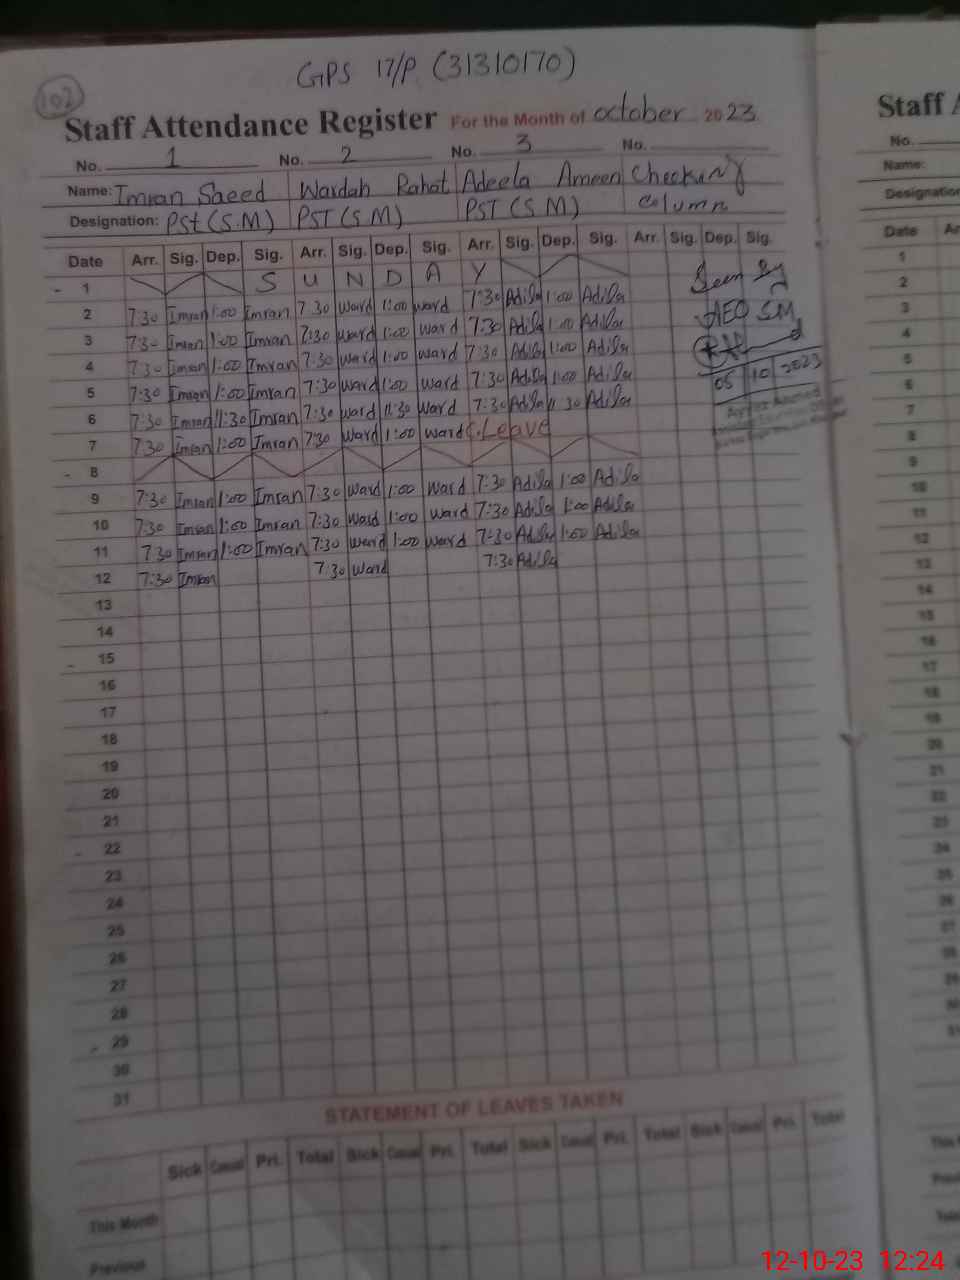 GPS 17/P (31310170)
102
Staff Attendance Register For the Month of october 2023.
No. 1 No. 2 No. 3 No.
Name: Imran Saeed Wardah Rahat Adeela Ameen Checking
Designation: PSt (S.M) PST (S.M) PST (S M) column
Date Arr. Sig. Dep. Sig. Arr. Sig. Dep. Sig. Arr. Sig. Dep. Sig. Arr. Sig. Dep. Sig.
1 S U N D A Y Seen By
2 7:30 Imran 1:00 Imran 7 30 Ward 1:00 Ward 7:30 Adila 1:00 Adila
3 7:30 Imran 1:00 Imran 7:30 Ward 1:00 Ward 7:30 Adila 1:00 Adila AEO SM
4 7:30 Imran 1:00 Imran 7:30 Ward 1:00 Ward 7:30 Adila 1:00 Adila
5 7:30 Imran 1:00 Imran 7:30 Ward 1:00 Ward 7:30 Adila 1:00 Adila 05 10 2023
6 7:30 Imran 11:30 Imran 7:30 Ward 11:30 Ward 7:30 Adila 11 30 Adila
7 7:30 Imran 1:00 Imran 7:30 Ward 1:00 Ward C.Leave
8
9 7:30 Imran 1:00 Imran 7:30 Ward 1:00 Ward 7:30 Adila 1:00 Adila
10 7:30 Imran 1:00 Imran 7:30 Ward 1:00 Ward 7:30 Adila 1:00 Adila
11 7:30 Imran 1:00 Imran 7:30 Ward 1:00 Ward 7:30 Adila 1:00 Adila
12 7:30 Imran 7:30 Ward 7:30 Adila
13
14
15
16
17
18
19
20
21
22
23
24
25
26
27
28
29
30
31
STATEMENT OF LEAVES TAKEN
Sick Casual Pri. Total Sick Casual Pri. Total Sick Casual Pri. Total Sick Casual Pri. Total
This Month
Previous
Staff
No.
Name:
Designation
Date Ar
1
2
3
4
5
6
7
8
9
10
11
12
13
14
15
16
17
18
19
20
21
22
23
24
25
26
27
28
29
30
31
12-10-23 12:24